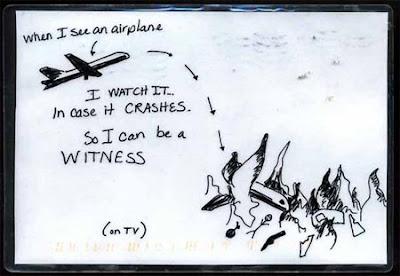 When I see an airplane
I WATCH IT...
In case it CRASHES.
So I can be a
WITNESS
(on TV)